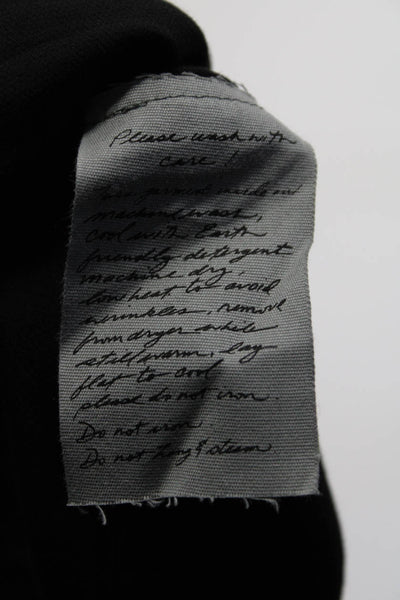 Please wash with
care!
garment inside out
machine wash,
cool with Earth
friendly detergent
machine dry,
low heat to avoid
wrinkles, remove
from dryer while
still warm, lay
flat to cool
please do not iron.
Do not iron.
Do not hang & steam